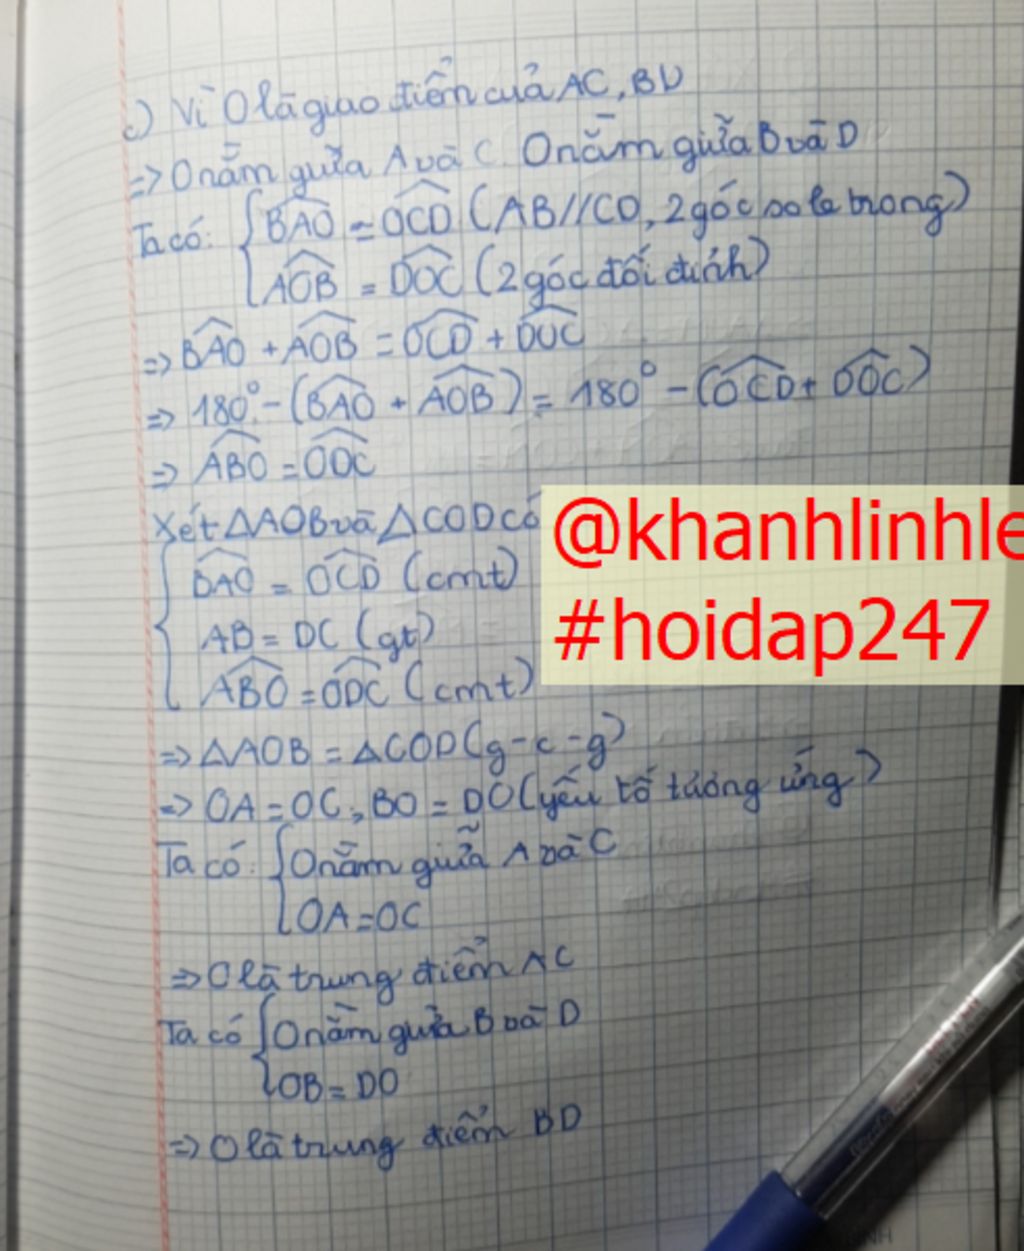 c) Vì O là giao điểm của AC, BD
=> O nằm giữa A và C. O nằm giữa B và D
Ta có: { BAO^ = OCD^ (AB//CD, 2 góc so le trong)
AOB^ = DOC^ (2 góc đối đỉnh)
=> BAO^ + AOB^ = OCD^ + DOC^
=> 180° - (BAO^ + AOB^) = 180° - (OCD^ + DOC^)
=> ABO^ = ODC^
Xét △AOB và △COD có
{ BAO^ = OCD^ (cmt)
AB = DC (gt)
ABO^ = ODC^ (cmt)
=> △AOB = △COD (g-c-g)
=> OA = OC, BO = DO (yếu tố tương ứng)
Ta có: { O nằm giữa A và C
OA = OC
=> O là trung điểm AC
Ta có { O nằm giữa B và D
OB = DO
=> O là trung điểm BD
@khanhlinhle
#hoidap247